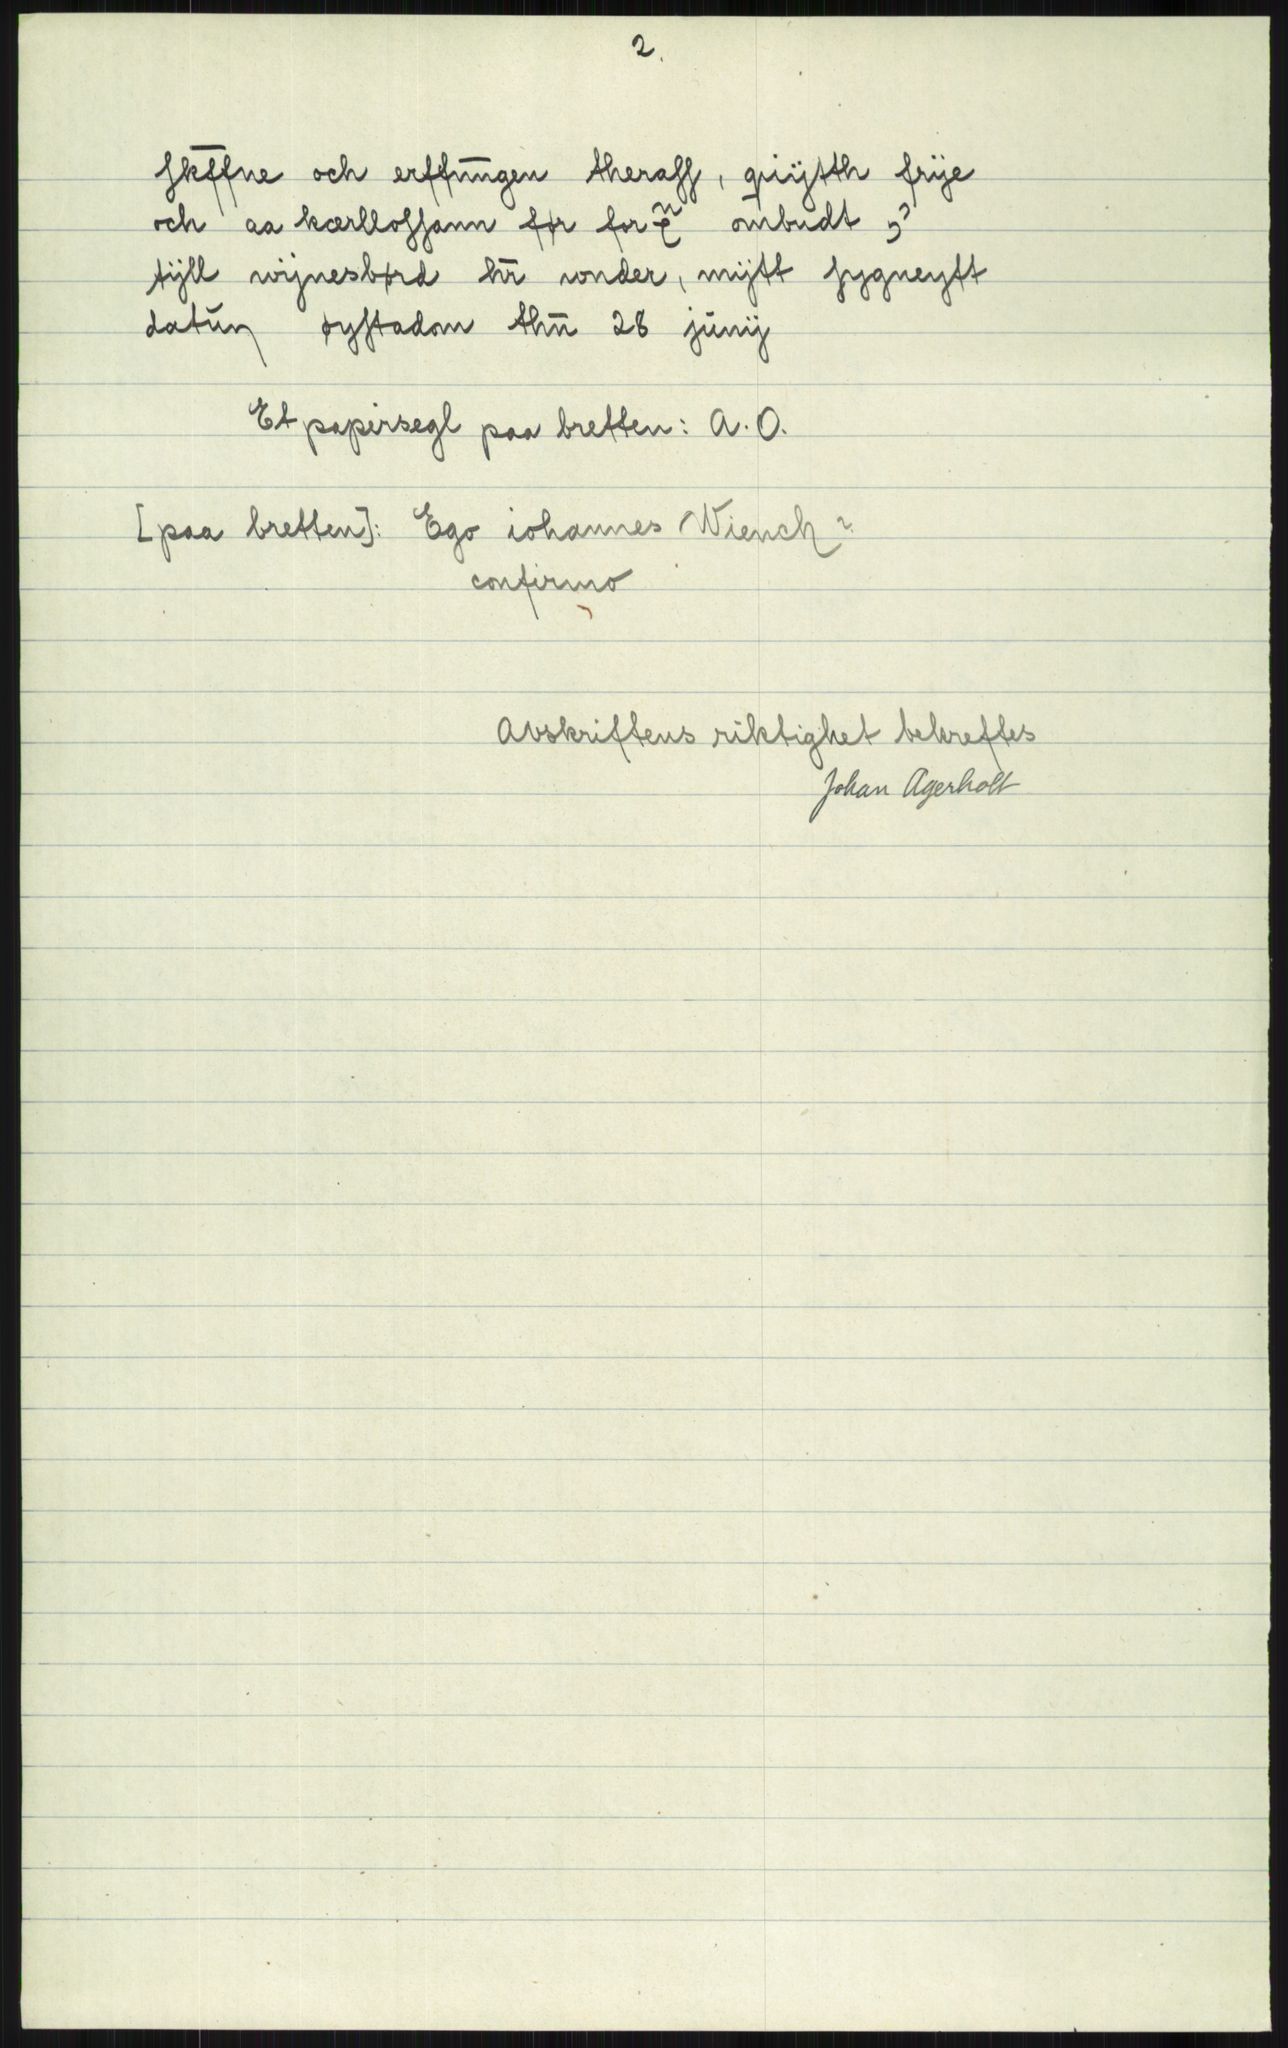 2.
skīffne och erffūngen theraff, qüÿtth frÿe
och aa kærllossann før for ombudt
tÿll wijnesbørd hr̄ wnder, mÿtt sygneytt
datūm systadom thn̄ 28 junij
Et papirsegl paa bretten: A. O.
[paa bretten]: Ego iohannes Wiench?
confirmo
Avskriftens riktighet bekreftes
Johan Agerholt